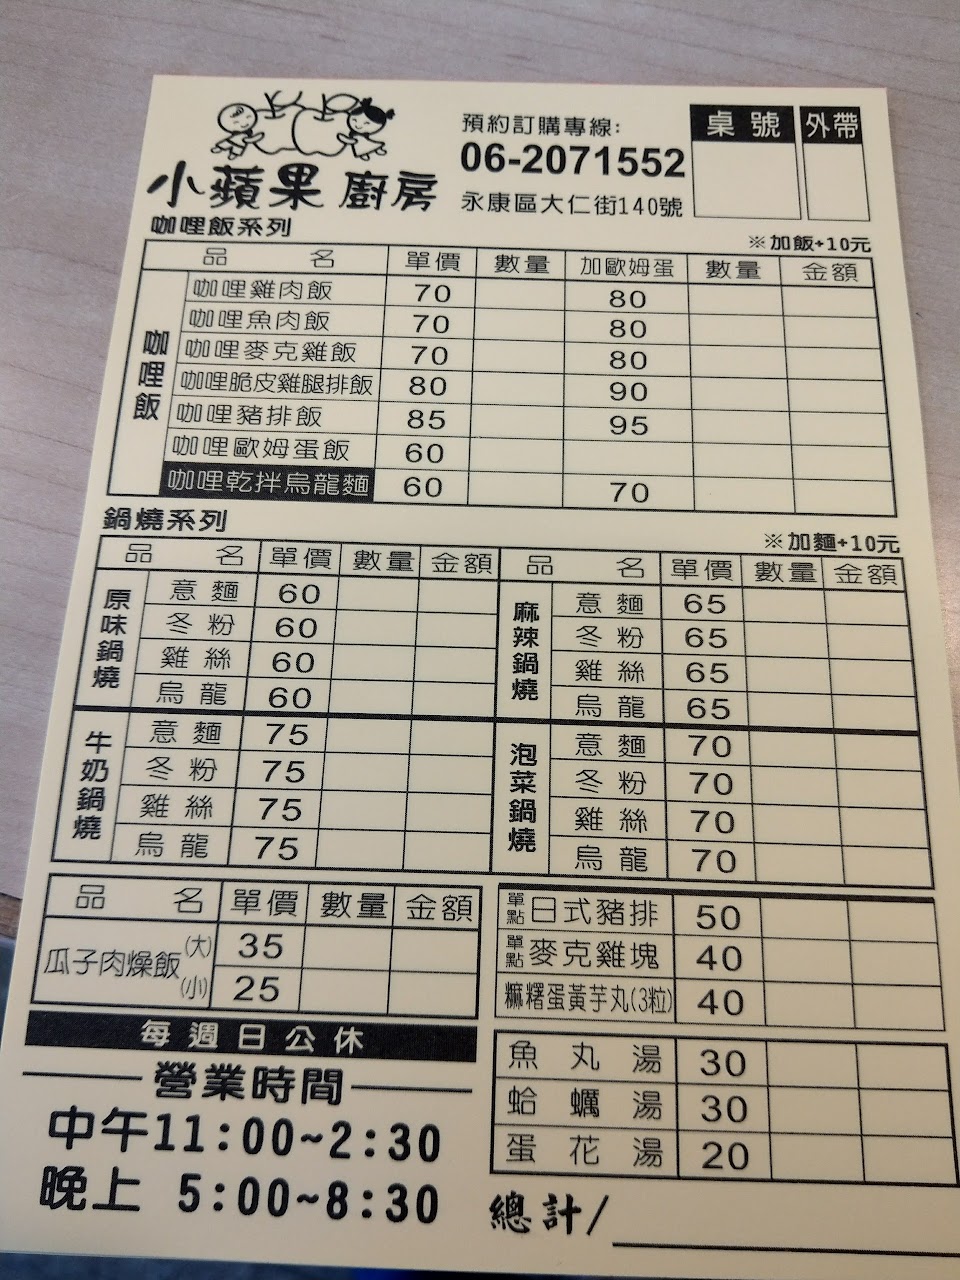 小蘋果 廚房
預約訂購專線:
06-2071552
永康區大仁街140號
桌號 外帶
咖哩飯系列
※加飯+10元
品名 單價 數量 加歐姆蛋 數量 金額
咖哩飯
咖哩雞肉飯 70 80
咖哩魚肉飯 70 80
咖哩麥克雞飯 70 80
咖哩脆皮雞腿排飯 80 90
咖哩豬排飯 85 95
咖哩歐姆蛋飯 60
咖哩乾拌烏龍麵 60 70
鍋燒系列
※加麵+10元
品名 單價 數量 金額 品名 單價 數量 金額
原味鍋燒
意麵 60
冬粉 60
雞絲 60
烏龍 60
麻辣鍋燒
意麵 65
冬粉 65
雞絲 65
烏龍 65
牛奶鍋燒
意麵 75
冬粉 75
雞絲 75
烏龍 75
泡菜鍋燒
意麵 70
冬粉 70
雞絲 70
烏龍 70
品名 單價 數量 金額
瓜子肉燥飯 (大) 35
(小) 25
單點 日式豬排 50
單點 麥克雞塊 40
麻糬蛋黃芋丸(3粒) 40
魚丸湯 30
蛤蠣湯 30
蛋花湯 20
每週日公休
營業時間
中午11:00~2:30
晚上 5:00~8:30
總計/